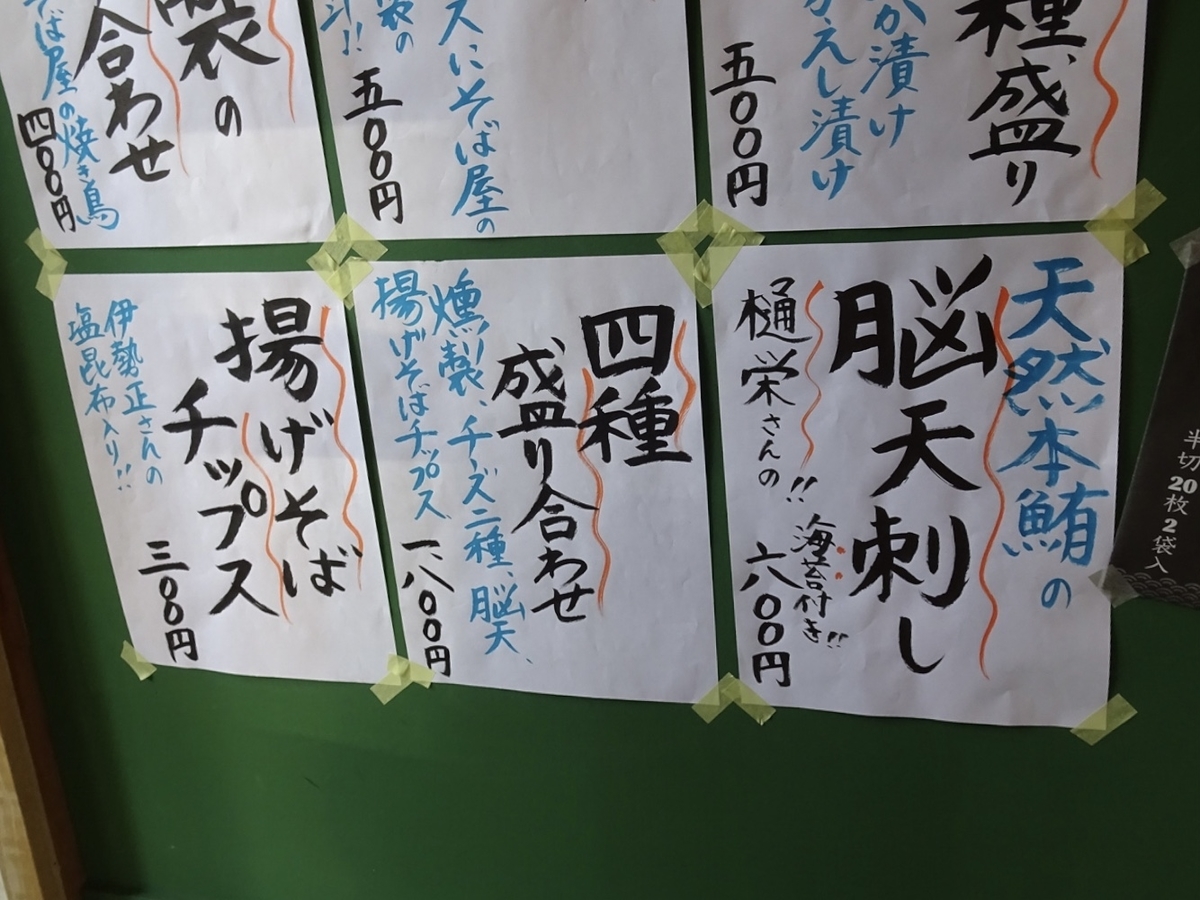 種盛り
か漬け
かえし漬け
五〇〇円
スにそば屋の
五〇〇円
製の
合わせ
そば屋の焼き鳥
四〇〇円
天然本鮪の
脳天刺し
樋栄さんの!!
海苔付き!!
六八〇〇円
四種
盛り合わせ
燻製、チーズ二種、脳天、
揚げそばチップス
一、八〇〇円
揚げそば
チップス
伊勢正さんの
塩昆布入り!!
三〇〇円
半切20枚2袋入